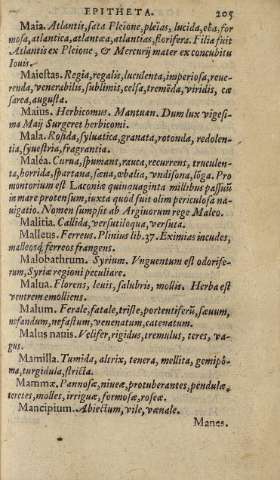 EPITHETA. 205
Maia. Atlantis, sata Pleione, pleias, lucida, eoa, for
mosa, atlantica, atlantæa, atlantias, florifera. Filia fuit
Atlantis ex Pleione, & Mercurij mater ex concubitu
Iouis.
Maiestas. Regia, regalis, luculenta, imperiosa, reue-
renda, venerabilis, sublimis, celsa, tremēda, viridis, cæ
sarea, augusta.
Maius. Herbicomus. Mantuan. Dum lux vigesi-
ma Maij Surgeret herbicomi.
Mala. Rosida, syluatica, granata, rotunda, redolen-
tia, syuestria, fragrantia.
Maléa. Curua, spumans, rauca, recurrens, truculen-
ta, horrida, spartana, sæua, œbalia, vndisona, lōga. Pro
montorium est Laconiæ quinquaginta millibus passuū
in mare protensum, iuxta quod fuit olim periculosa na-
uigatio. Nomen sumpsit ab Argiuorum rege Maleo.
Malitia. Callida, versutiloqua, versuta.
Malleus. Ferreus. Plinius lib. 37. Eximias incudes,
malleosq́; ferreos frangens.
Malobathrum. Syrium. Vnguentum est odorife-
rum, Syriæ regioni peculiare.
Malua. Florens, leuis, salubris, mollis. Herba est
ventrem emolliens.
Malum. Ferale, fatale, triste, portentiferū, sæuum,
nefandum, nefastum, venenatum, catenatum.
Malus nauis. Velifer, rigidus, tremulus, teres, va-
gus.
Mamilla. Tumida, altrix, tenera, mellita, gemipō-
ma, turgidula, stricta.
Mammæ. Pannosæ, niueæ, protuberantes, pendulæ,
teretes, molles, irriguæ, formosæ, roseæ.
Mancipium. Abiectum, vile, vænale.
Manes.